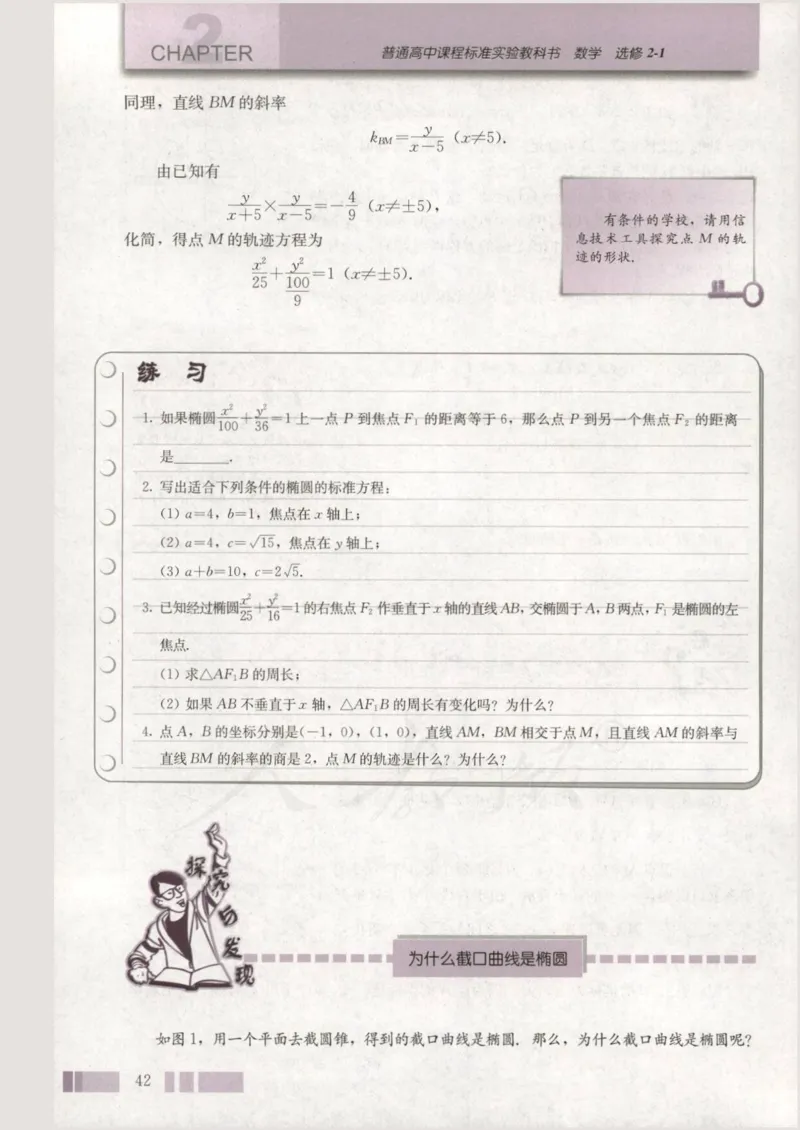 2
CHAPTER
普通高中课程标准实验教科书 数学 选修 2-1
同理，直线 BM 的斜率
k_BM = y/(x-5) (x≠5).
由已知有
y/(x+5) × y/(x-5) = -4/9 (x≠±5),
化简，得点 M 的轨迹方程为
x²/25 + y²/(100/9) = 1 (x≠±5).
有条件的学校，请用信
息技术工具探究点 M 的轨
迹的形状.
练 习
1. 如果椭圆 x²/100 + y²/36 = 1 上一点 P 到焦点 F₁ 的距离等于 6，那么点 P 到另一个焦点 F₂ 的距离
是______.
2. 写出适合下列条件的椭圆的标准方程：
(1) a=4，b=1，焦点在 x 轴上；
(2) a=4，c=√15，焦点在 y 轴上；
(3) a+b=10，c=2√5.
3. 已知经过椭圆 x²/25 + y²/16 = 1 的右焦点 F₂ 作垂直于 x 轴的直线 AB，交椭圆于 A，B 两点，F₁ 是椭圆的左
焦点.
(1) 求△AF₁B 的周长；
(2) 如果 AB 不垂直于 x 轴，△AF₁B 的周长有变化吗？为什么？
4. 点 A，B 的坐标分别是(-1，0)，(1，0)，直线 AM，BM 相交于点 M，且直线 AM 的斜率与
直线 BM 的斜率的商是 2，点 M 的轨迹是什么？为什么？
探究与发现
为什么截口曲线是椭圆
如图 1，用一个平面去截圆锥，得到的截口曲线是椭圆. 那么，为什么截口曲线是椭圆呢？
42